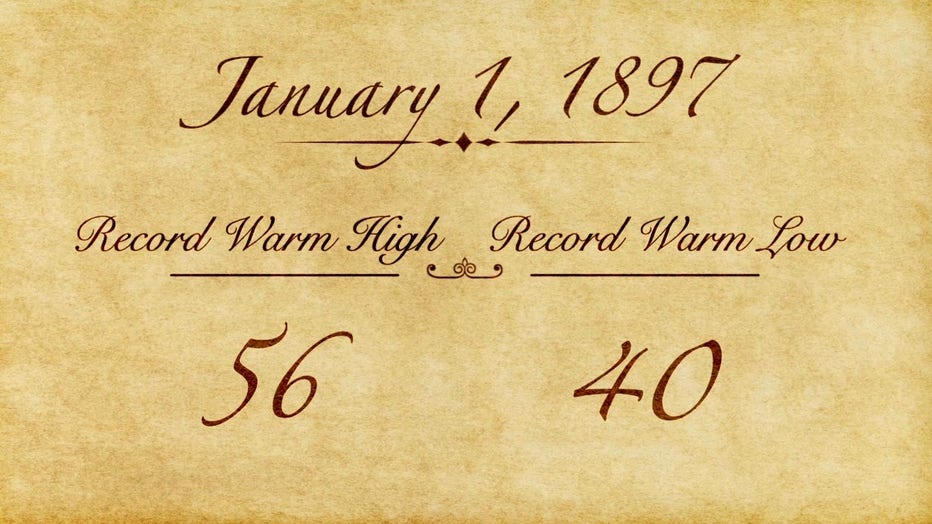 January 1, 1897
Record Warm High Record Warm Low
56 40